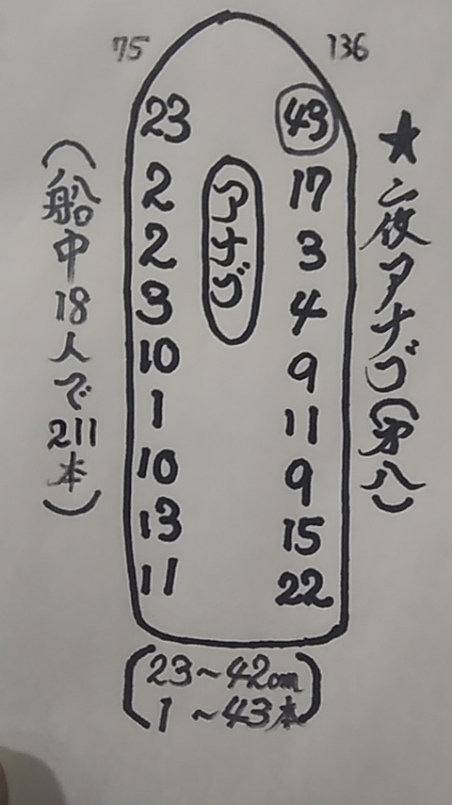 75 136
23 43
2 17
2 3
3 4
10 9
1 11
10 9
13 15
11 22
アナゴ
★夜アナゴ(第八)
(船中18人で211本)
(23~42cm
1~43本)